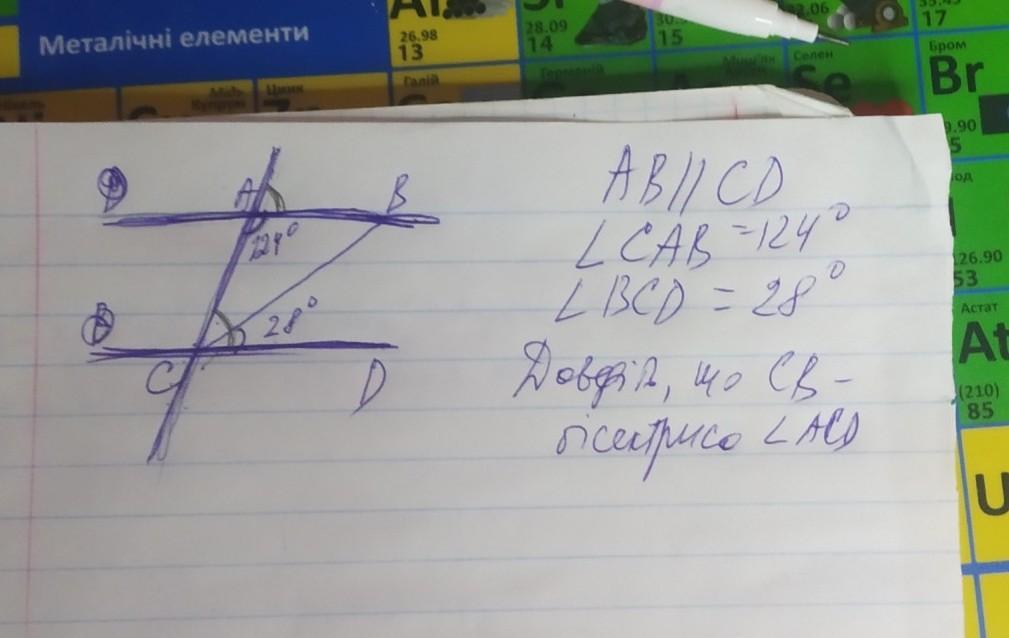 Металічні елементи
26.98
13
28.09
14
15
32.06
35.45
17
Галій
Германій
Селен
Se
Бром
Br
Цинк
126.90
53
Астат
At
(210)
85
U
A
B
124°
28°
C
D
AB//CD
∠CAB =124°
∠BCD = 28°
Довдіть, що CB -
бісектриса ∠ACD